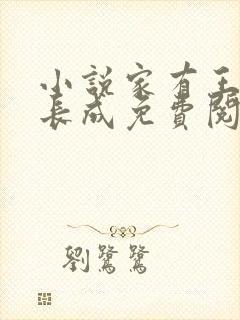 小說家有王
長成免費閱
劉鷺鷺